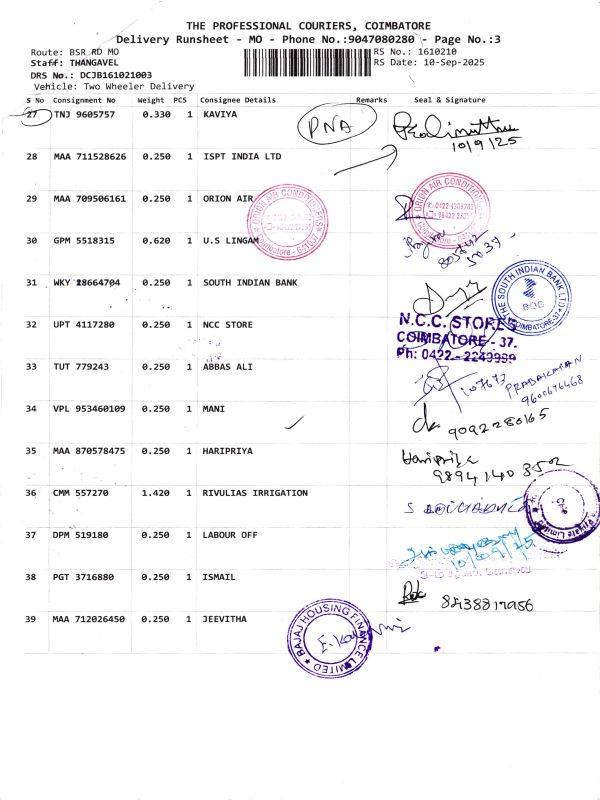 THE PROFESSIONAL COURIERS, COIMBATORE
Delivery Runsheet - MO - Phone No.:9047080280 - Page No.:3
Route: BSR RD MO
RS No.: 1610210
Staff: THANGAVEL
RS Date: 10-Sep-2025
DRS No.: DCJB161021003
Vehicle: Two Wheeler Delivery
S No Consignment No Weight PCS Consignee Details Remarks Seal & Signature
27 TNJ 9605757 0.330 1 KAVIYA PNA
10/9/25
28 MAA 711528626 0.250 1 ISPT INDIA LTD
29 MAA 709506161 0.250 1 ORION AIR
ORION AIR CONDITION
30 GPM 5518315 0.620 1 U.S LINGAM
31 WKY 28664704 0.250 1 SOUTH INDIAN BANK
THE SOUTH INDIAN BANK LTD
COIMBATORE-37
32 UPT 4117280 0.250 1 NCC STORE
N.C.C. STORES
COIMBATORE - 37.
Ph: 0422 - 2249999
33 TUT 779243 0.250 1 ABBAS ALI
PRABAKARAN
9600676468
34 VPL 953460109 0.250 1 MANI
9092280165
35 MAA 870578475 0.250 1 HARIPRIYA
Haripriya
9894140 3502
36 CMM 557270 1.420 1 RIVULIAS IRRIGATION
Private Limited
37 DPM 519180 0.250 1 LABOUR OFF
10/09/25
38 PGT 3716880 0.250 1 ISMAIL
39 MAA 712026450 0.250 1 JEEVITHA
BAJAJ HOUSING FINANCE LIMITED